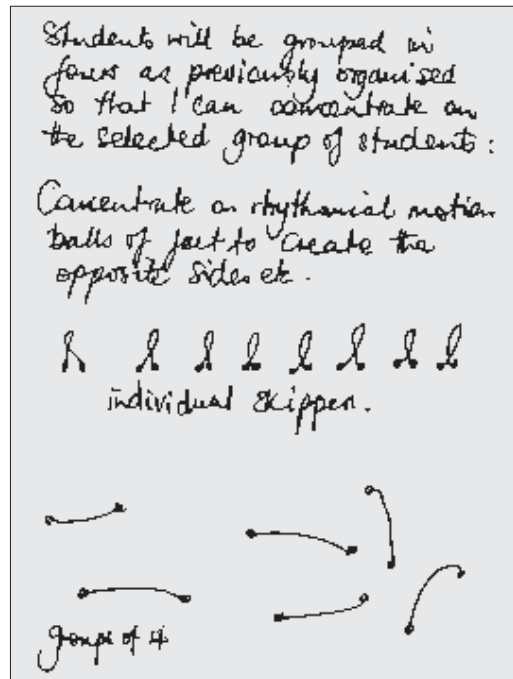 Students will be grouped in
fours as previously organised
so that I can concentrate on
the selected group of students:
Concentrate on rhythmical motion
balls of feet to create the
opposite sides etc.
individual skipper.
groups of 4